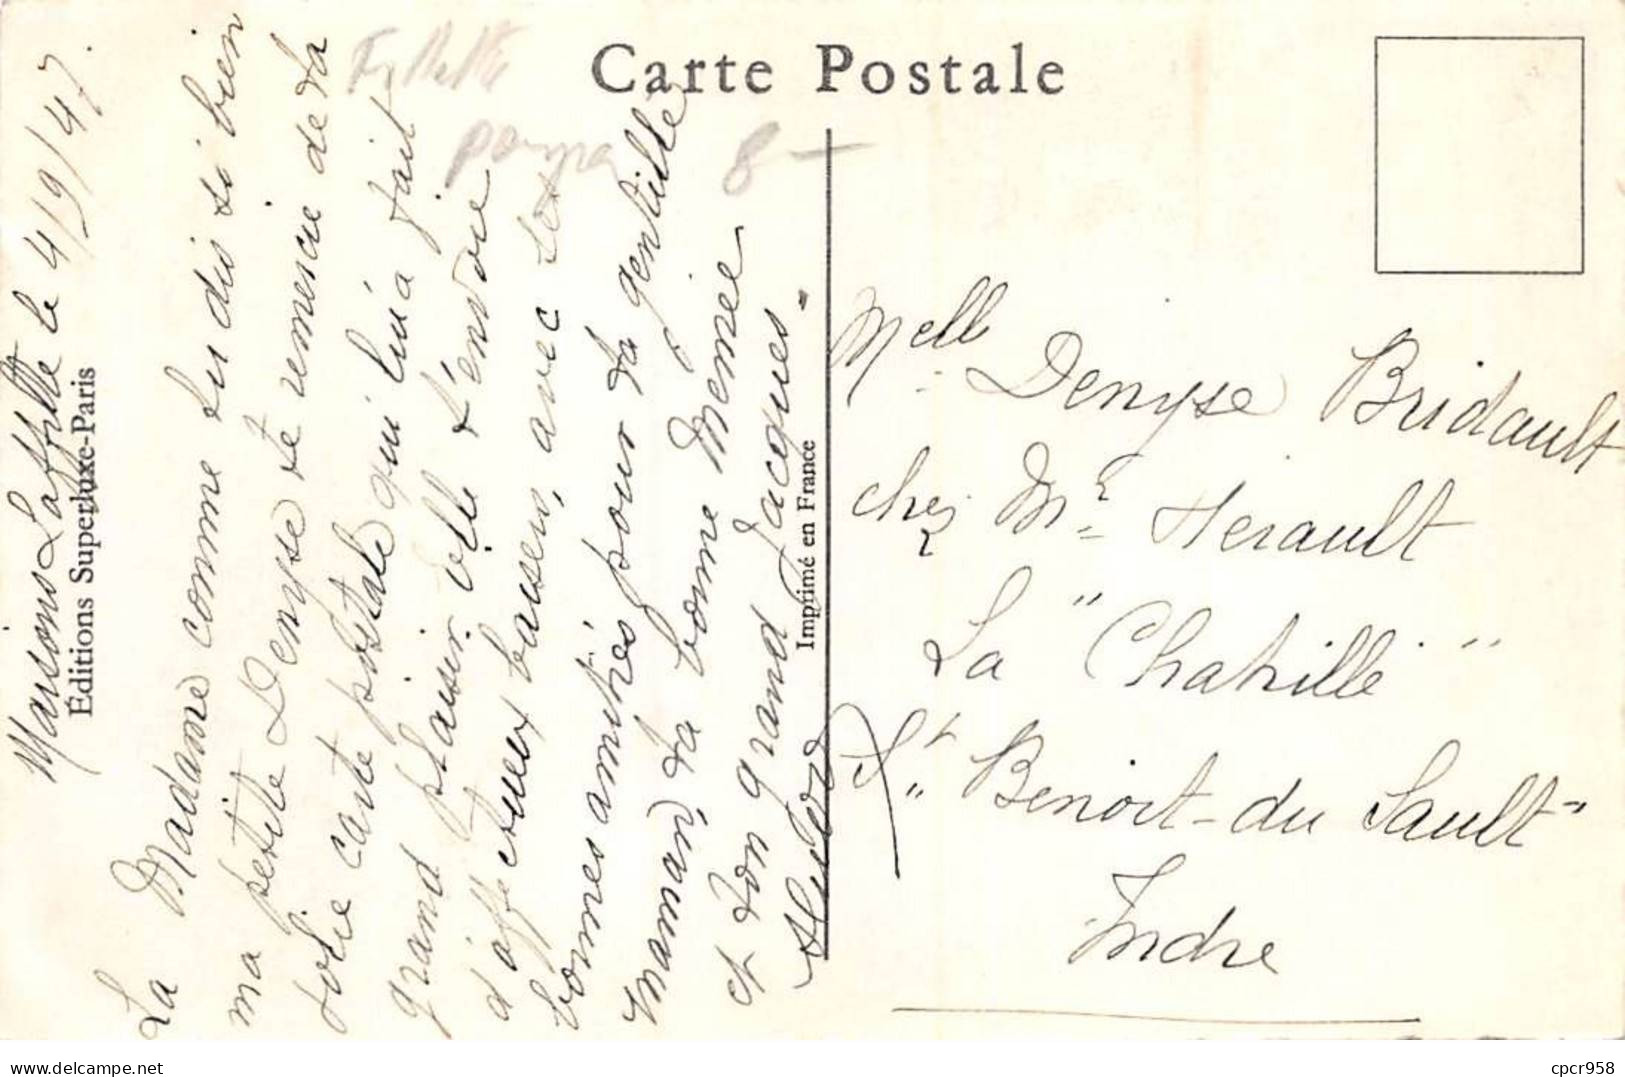 Carte Postale
Fillette
8 —
Maisons Laffitte le 4/9/47.
Éditions Superluxe-Paris
La Madame comme tu dis si bien
ma petite Denyse te remercie de ta
jolie carte postale qui lui a fait
grand plaisir elle t'envoie
d'affectueux baisers, avec ses
bonnes amitiés pour ta gentille
maman, ta bonne Mémée
et ton grand Jacques -
Imprimé en France
Melle Denyse Bridault
chez Mr Herault
La "Chatille"
St Benoit-du Sault-
Indre
cpcr958